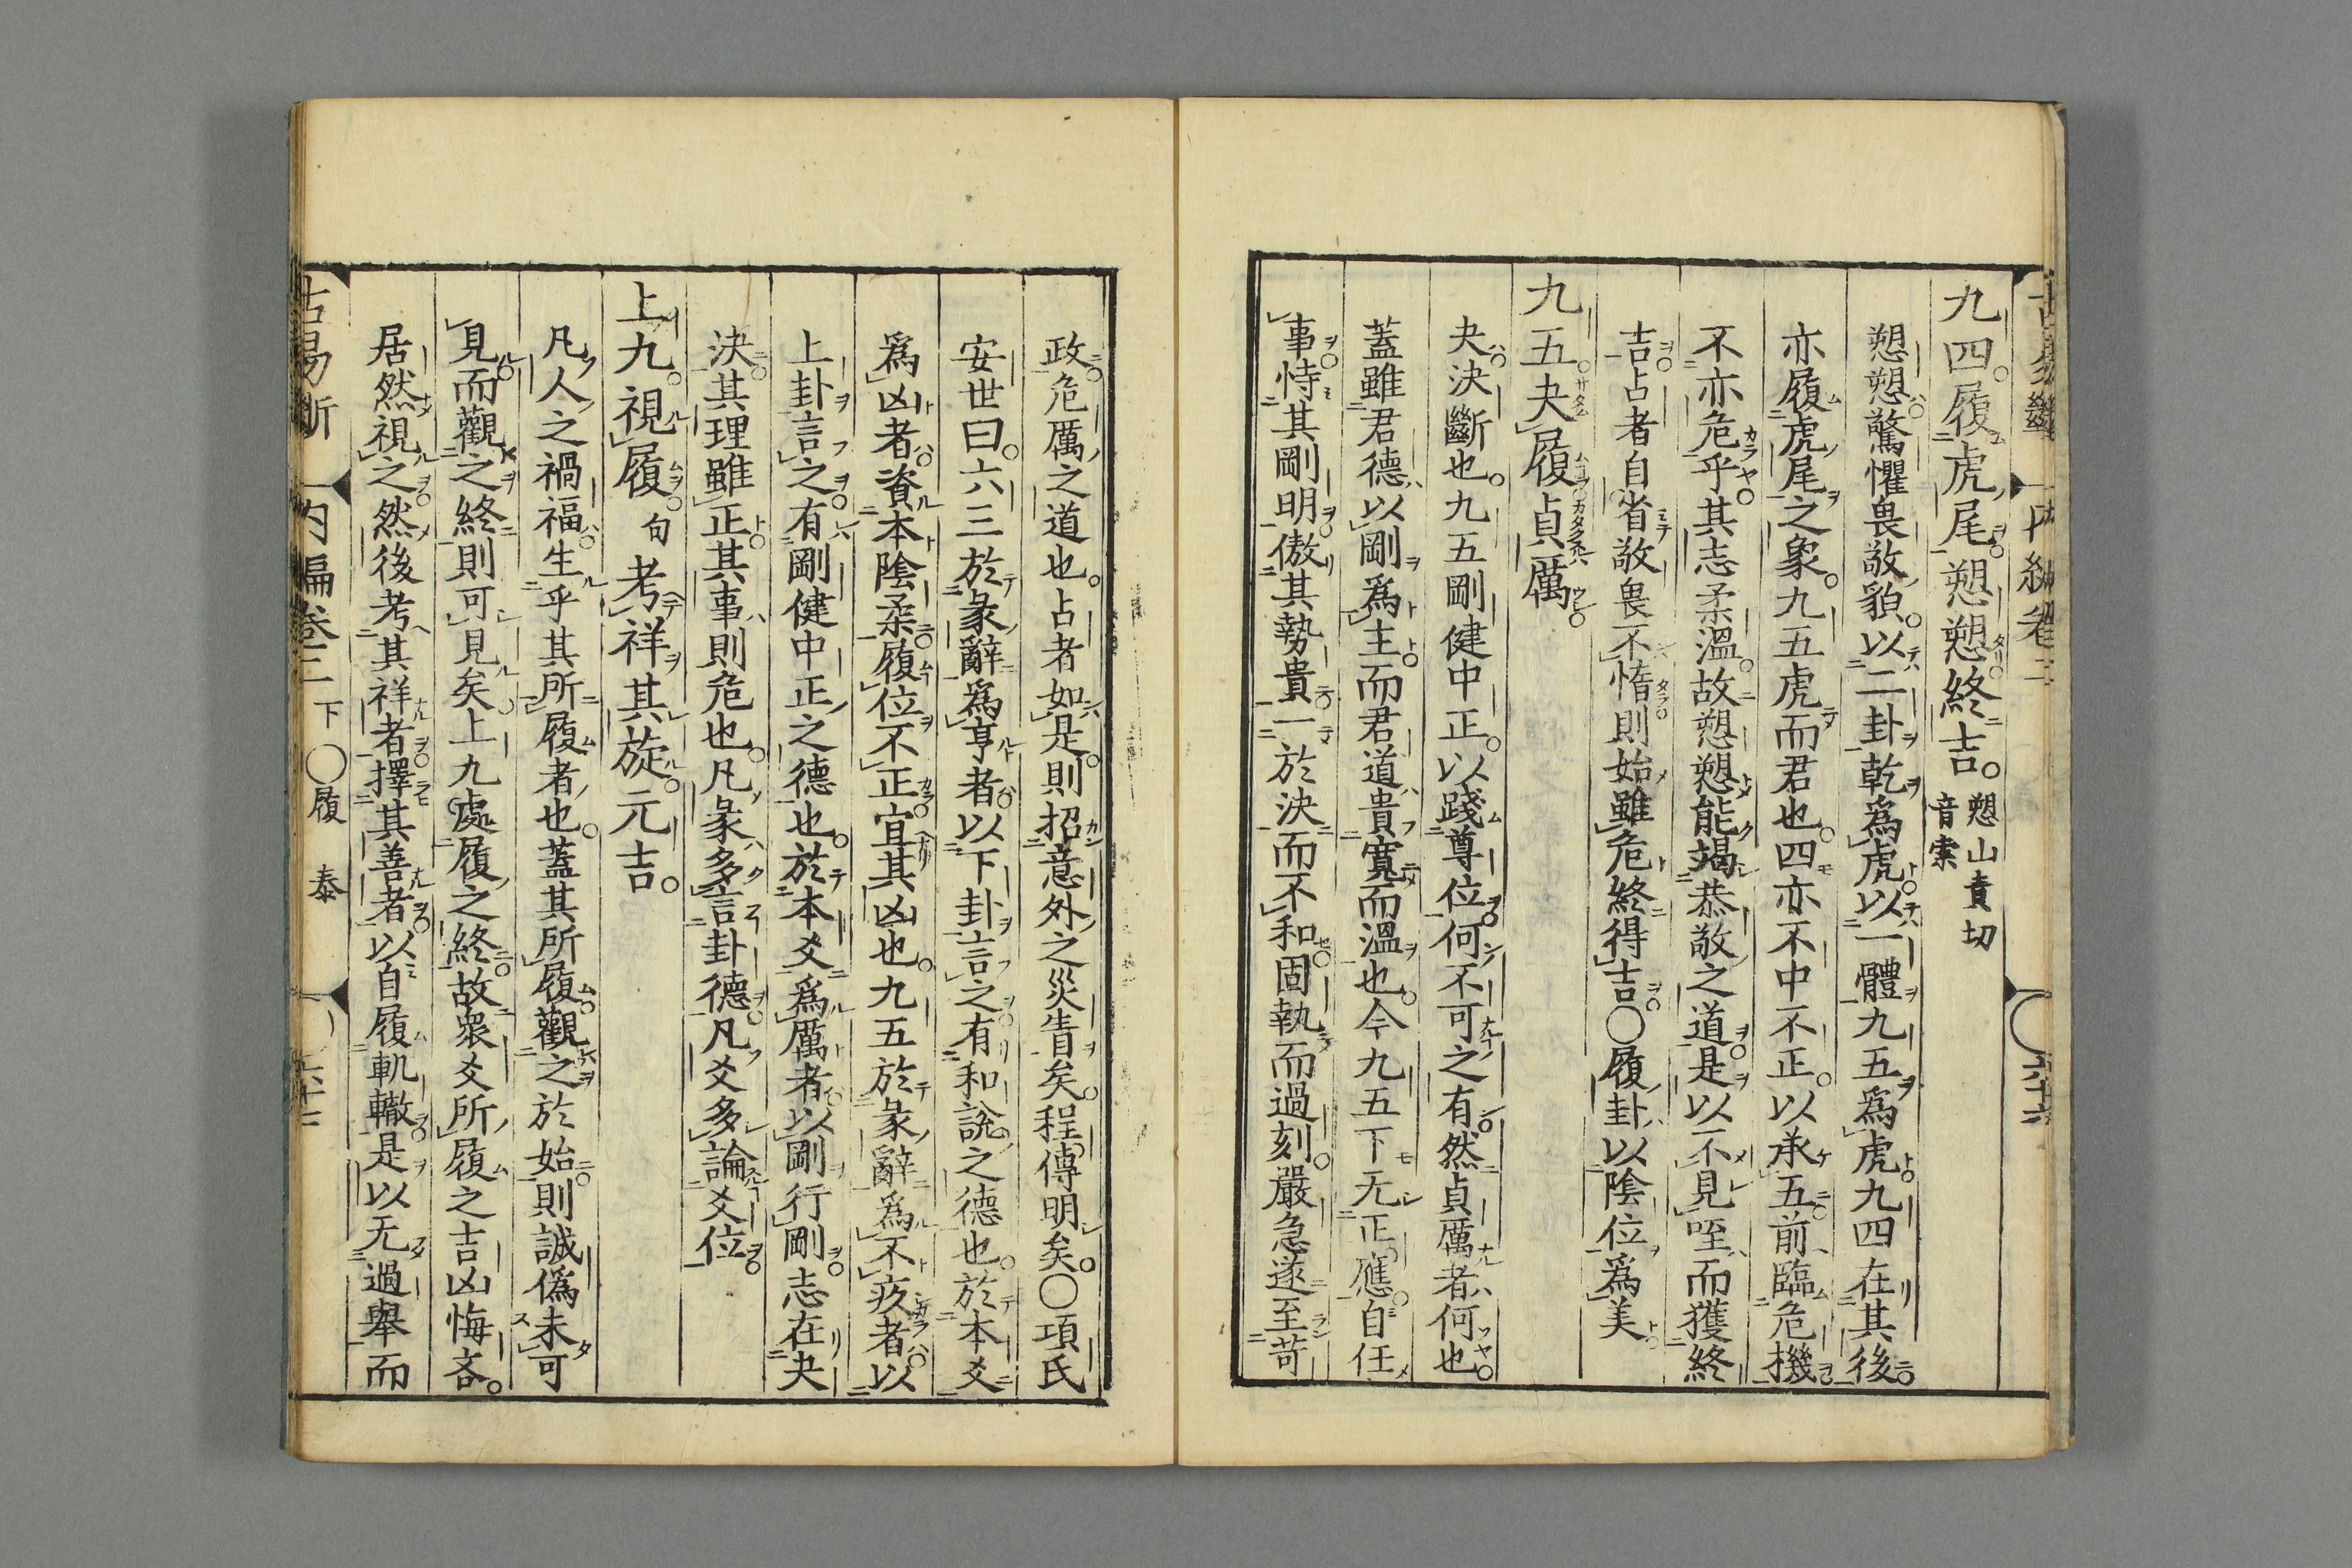 九四。履虎尾。愬愬終吉。愬山責切音索
愬愬驚懼畏敬貌。以二卦乾爲虎。以一體九五爲虎。九四在其後
亦履虎尾之象。九五虎而君也。四亦不中不正。以承五前臨危機
不亦危乎。其志柔溫。故愬愬能竭恭敬之道。是以不見咥而獲終
吉。占者自省敬畏不惰則始雖危終得吉。〇履卦以陰位爲美。
九五。夬履貞厲。
夬決斷也。九五剛健中正。以踐尊位。何不可之有。然貞厲者何也。
蓋雖君德以剛爲主。而君道貴寬而溫也。今九五下无正應。自任
事。恃其剛明。傲其勢貴。一於決而不和。固執而過刻。嚴急遂至苛
政。危厲之道也。占者如是。則招意外之災眚矣。程傳明矣。〇項氏
安世曰。六三於彖辭爲亨者。以下卦言之。有和說之德也。於本爻
爲凶者。資本陰柔。履位不正。宜其凶也。九五於彖辭爲不疚者。以
上卦言之。有剛健中正之德也。於本爻爲厲者。以剛行剛。志在夬
決。其理雖正。其事則危也。凡彖多言卦德。凡爻多論爻位。
上九。視履。句考祥其旋。元吉。
凡人之禍福。生乎其所履者也。蓋其所履。觀之於始。則誠僞未可
見。而觀之終則可見矣。上九處履之終。故衆爻所履之吉凶悔吝。
居然視之。然後考其祥者。擇其善者。以自履軌轍。是以无過舉而
古易斷 內編卷三下 〇履 泰